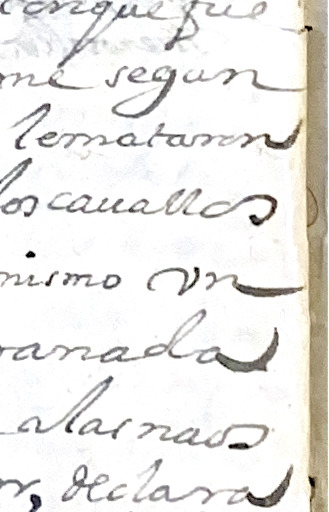 que fue
me segun
lemataron
los cauallos
mismo vn
ranada
alas naos
or, declara